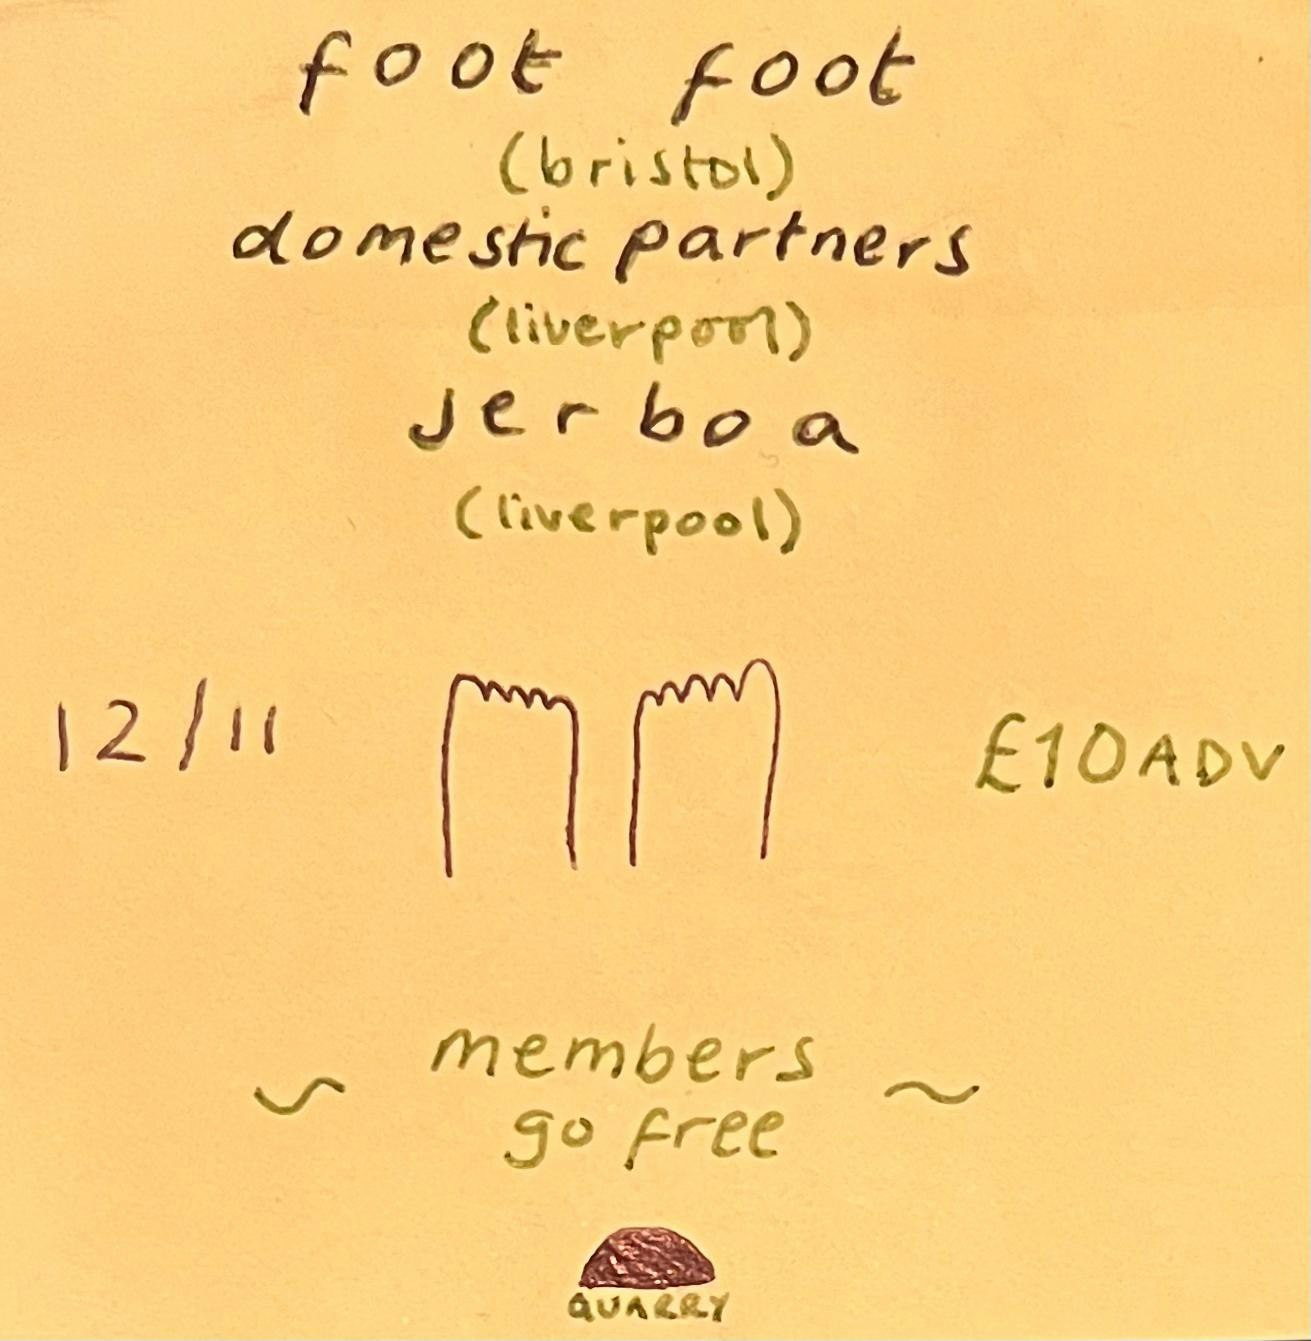 foot foot
(bristol)
domestic partners
(liverpool)
jerboa
(liverpool)
12/11
£10 ADV
members
go free
QUARRY